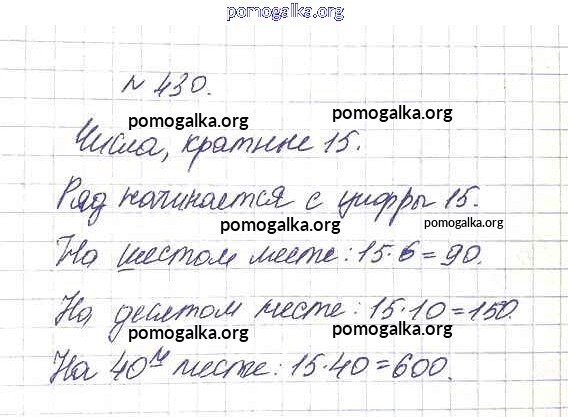 pomogalka.org
N 430.
pomogalka.org
pomogalka.org
Числа, кратные 15.
pomogalka.org
Ряд начинается с цифры 15.
pomogalka.org pomogalka.org
На шестом месте: 15·6=90.
pomogalka.org
На десятом месте: 15·10=150.
pomogalka.org pomogalka.org
На 40м месте: 15·40=600.
pomogalka.org